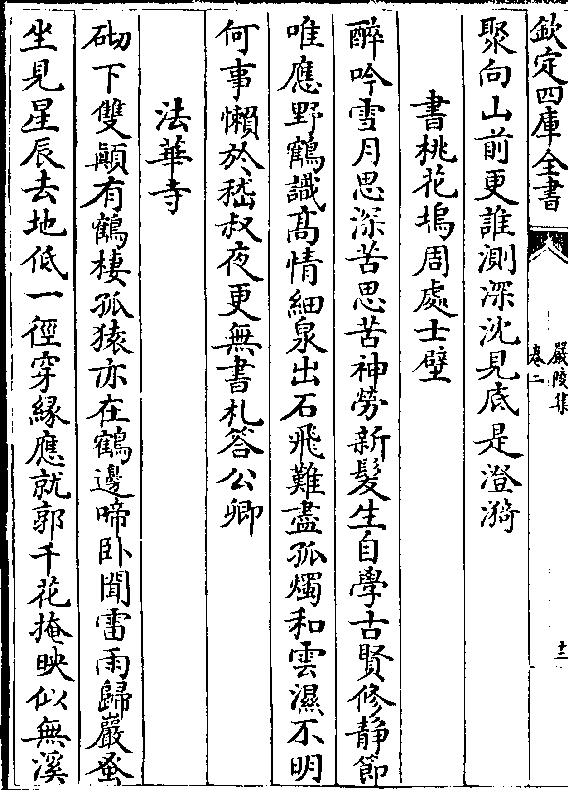 欽定四庫全書
嚴陵集
卷二
十二
聚向山前更誰測深沈見底是澄漪
書桃花塢周處士壁
醉吟雪月思深苦思苦神勞新髮生自學古賢修静節
唯應野鶴識髙情細泉出石飛難盡孤燭和雲濕不明
何事懶於嵇叔夜更無書札答公卿
法華寺
砌下雙顛有鶴棲孤猿亦在鶴邊啼卧聞雷雨歸巖蚤
坐見星辰去地低一徑穿緣應就郭千花掩映似無溪